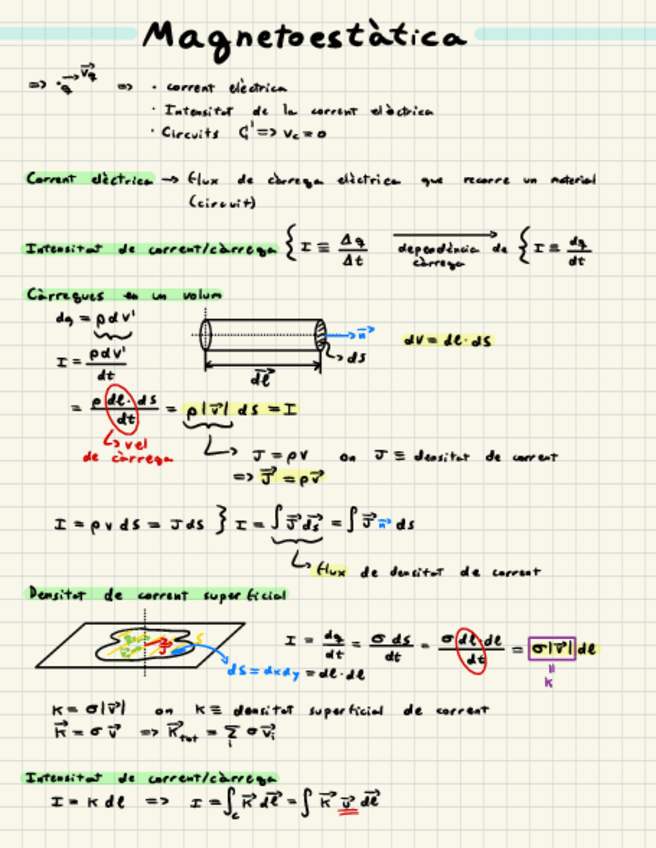 Magnetoestàtica
=> · q → v⃗q => · corrent elèctrica
· Intensitat de la corrent elèctrica
· Circuits => Vc = 0
Corrent elèctrica → flux de càrrega elèctrica que recorre un material
(circuit)
Intensitat de corrent/càrrega { I ≡ Δq/Δt dependència de càrrega { I ≡ dq/dt
Càrregues en un volum
dq = ρdv'
I = ρdv'/dt
n⃗
dS
dl⃗
dV = dl · dS
= ρ dl · dS/dt = ρ|v⃗| dS = I
↳ vel de càrrega
↳ J = ρv on J ≡ densitat de corrent
=> J⃗ = ρv⃗
I = ρ v dS = J dS } I = ∫ J⃗ dS⃗ = ∫ J⃗ n⃗ dS
↳ flux de densitat de corrent
Densitat de corrent superficial
S
dS = dxdy = dl · dl
I = dq/dt = σ dS/dt = σ dl · dl/dt = σ|v⃗| dl
"
K
K = σ|v⃗| on K ≡ densitat superficial de corrent
K⃗ = σ v⃗ => K⃗tot = Σi σ v⃗i
Intensitat de corrent/càrrega
I = K dl => I = ∫c K⃗ dl⃗ = ∫ K⃗ v⃗ dl⃗